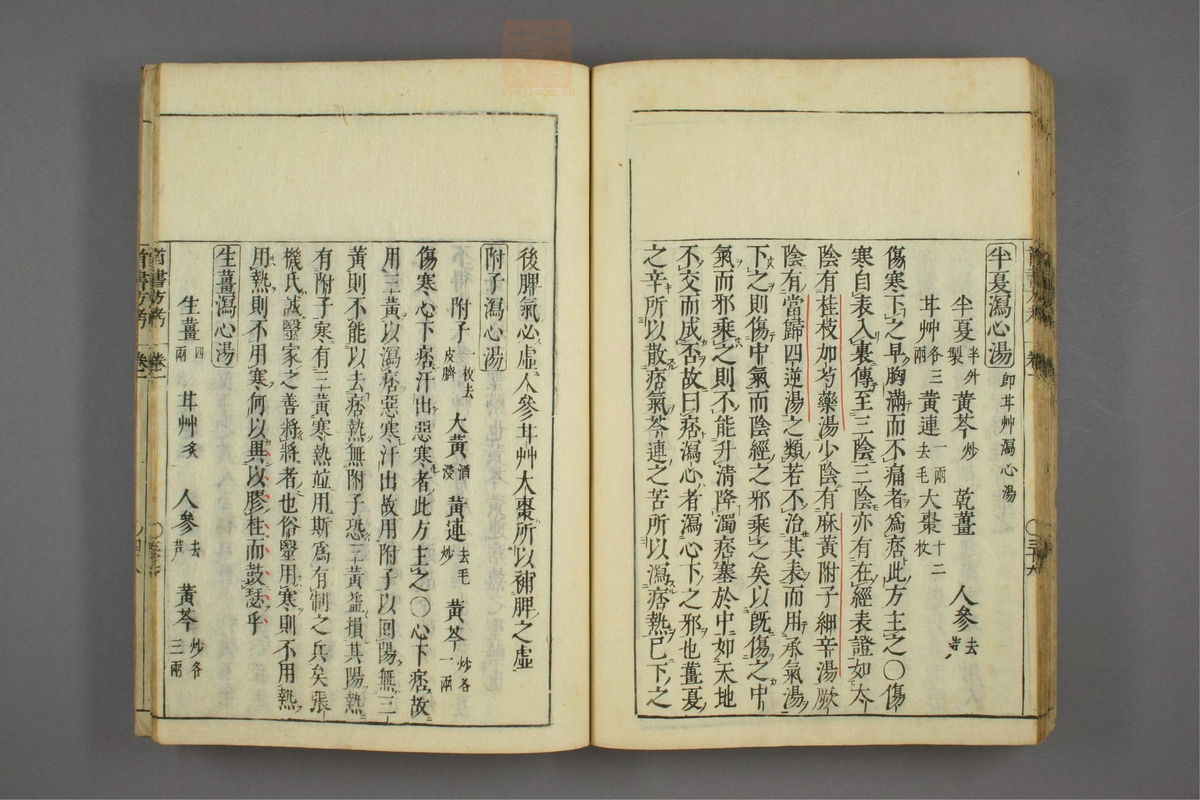 半夏瀉心湯 即甘艸瀉心湯
半夏 半升製 黃芩 炒 乾薑 人參 去
甘艸 各三兩 黃連 一兩去毛 大棗 十二枚
傷寒下之早胸滿而不痛者為痞此方主之〇傷
寒自表入裏傳至三陰三陰亦有在經表證如太
陰有桂枝加芍藥湯少陰有麻黃附子細辛湯厥
陰有當歸四逆湯之類若不治其表而用承氣湯
下之則傷中氣而陰經之邪乘之矣以既傷之中
氣而邪乘之則不能升清降濁痞塞於中如天地
不交而成否故曰痞瀉心者瀉心下之邪也薑夏
之辛所以散痞氣芩連之苦所以瀉痞熱已下之
後脾氣必虛人參甘艸大棗所以補脾之虛
附子瀉心湯
附子 一枚去皮臍 大黃 酒浸 黃連 去毛炒 黃芩 炒各一兩
傷寒心下痞汗出惡寒者此方主之〇心下痞故
用三黃以瀉痞惡寒汗出故用附子以回陽無三
黃則不能以去痞熱無附子恐三黃益損其陽熱
有附子寒有三黃寒熱竝用斯為有制之兵矣張
機氏誠醫家之善將將者也俗醫用寒則不用熱
用熱則不用寒何以異以膠柱而鼓瑟乎
生薑瀉心湯
生薑 四兩 甘艸 炙 人參 去 黃芩 炒各三兩